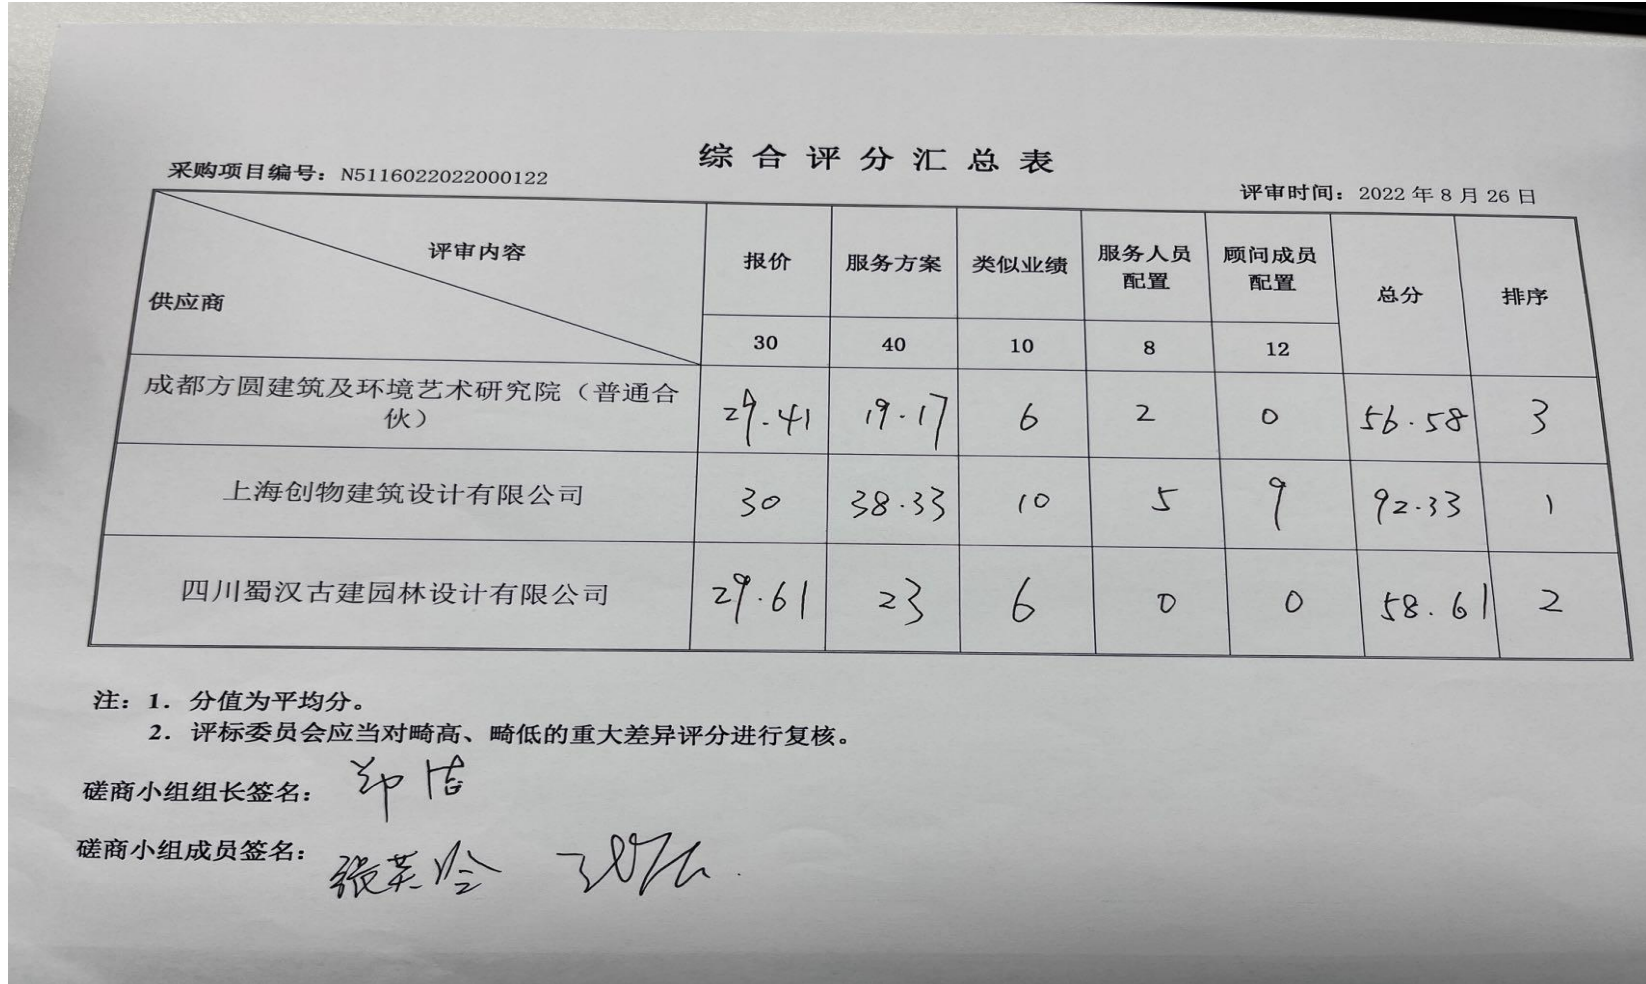 综合评分汇总表
采购项目编号：N5116022022000122
评审时间：2022 年 8 月 26 日
评审内容
供应商
报价 服务方案 类似业绩 服务人员配置 顾问成员配置 总分 排序
30 40 10 8 12
成都方圆建筑及环境艺术研究院（普通合
伙）
29.41 19.17 6 2 0 56.58 3
上海创物建筑设计有限公司 30 38.33 10 5 9 92.33 1
四川蜀汉古建园林设计有限公司 29.61 23 6 0 0 58.61 2
注：1．分值为平均分。
2．评标委员会应当对畸高、畸低的重大差异评分进行复核。
磋商小组组长签名： 郑洁
磋商小组成员签名：